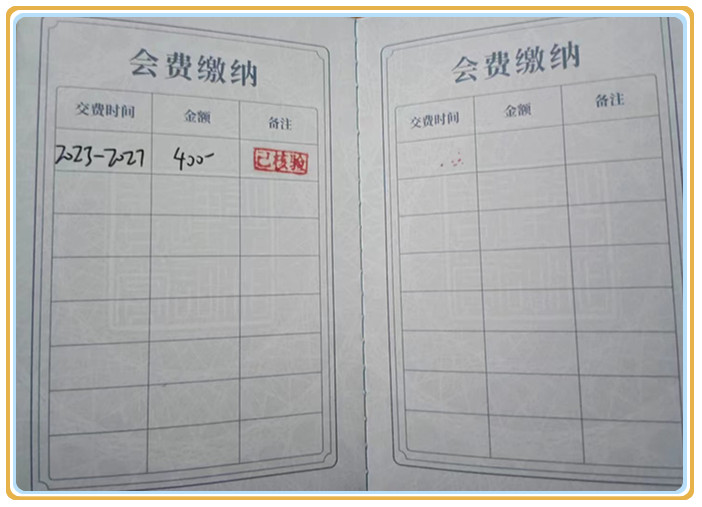 会费缴纳
交费时间 金额 备注
2023-2027 400- 已核验
会费缴纳
交费时间 金额 备注